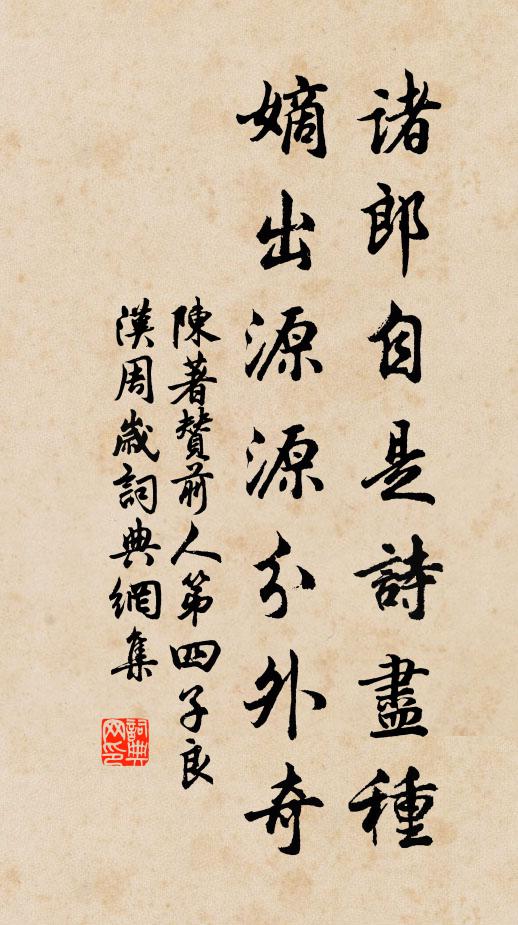 诸郎自是詩盡種
嫡出源源分外奇
陳著贊前人第四子良
漢周歲詞典網集
詞典
网印